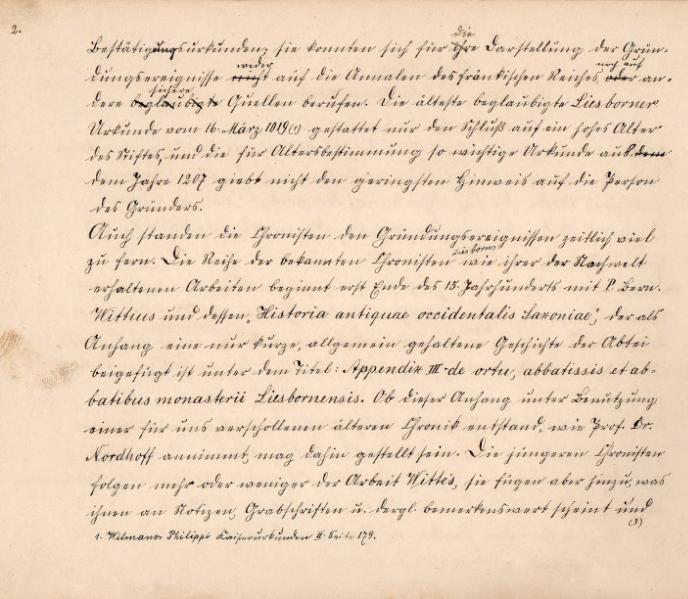 2.
Bestätigungsurkunden; sie konnten sich für ihre die Darstellung der Grün-
dungsereignisse nicht weder auf die Annalen des fränkischen Reiches oder noch auf an-
dere beglaubigte sichere Quellen berufen. Die älteste beglaubigte Liesborner
Urkunde vom 16. März 1019(1) gestattet nur den Schluß auf ein hohes Alter
des Stiftes, und die für Altersbestimmung so wichtige Urkunde aus dem
dem Jahre 1207 giebt nicht den geringsten Hinweis auf die Person
des Gründers.
Auch standen die Chronisten den Gründungsereignissen zeitlich viel
zu fern. Die Reihe der bekannten Chronisten Liesborns wie ihrer der Nachwelt
erhaltenen Arbeiten beginnt erst Ende des 15. Jahrhunderts mit P. Bern.
Wittius und dessen „Historia antiquae occidentalis Saxoniae“, der als
Anhang eine nur kurze, allgemein gehaltene Geschichte der Abtei
beigefügt ist unter dem Titel: Appendix III de ortu, abbatissis et ab-
batibus monasterii Liesbornensis. Ob dieser Anhang unter Benutzung
einer für uns verschollenen älteren Chronik entstand, wie Prof. Dr.
Nordhoff annimmt, mag dahin gestellt sein. Die jüngeren Chronisten
folgen mehr oder weniger der Arbeit Wittes, sie fügen aber hinzu, was
ihnen an Notizen, Grabschriften u. dergl. bemerkenswert scheint und
(3)
1. Wilmans-Philippi Kaiserurkunden II. Seite 179.